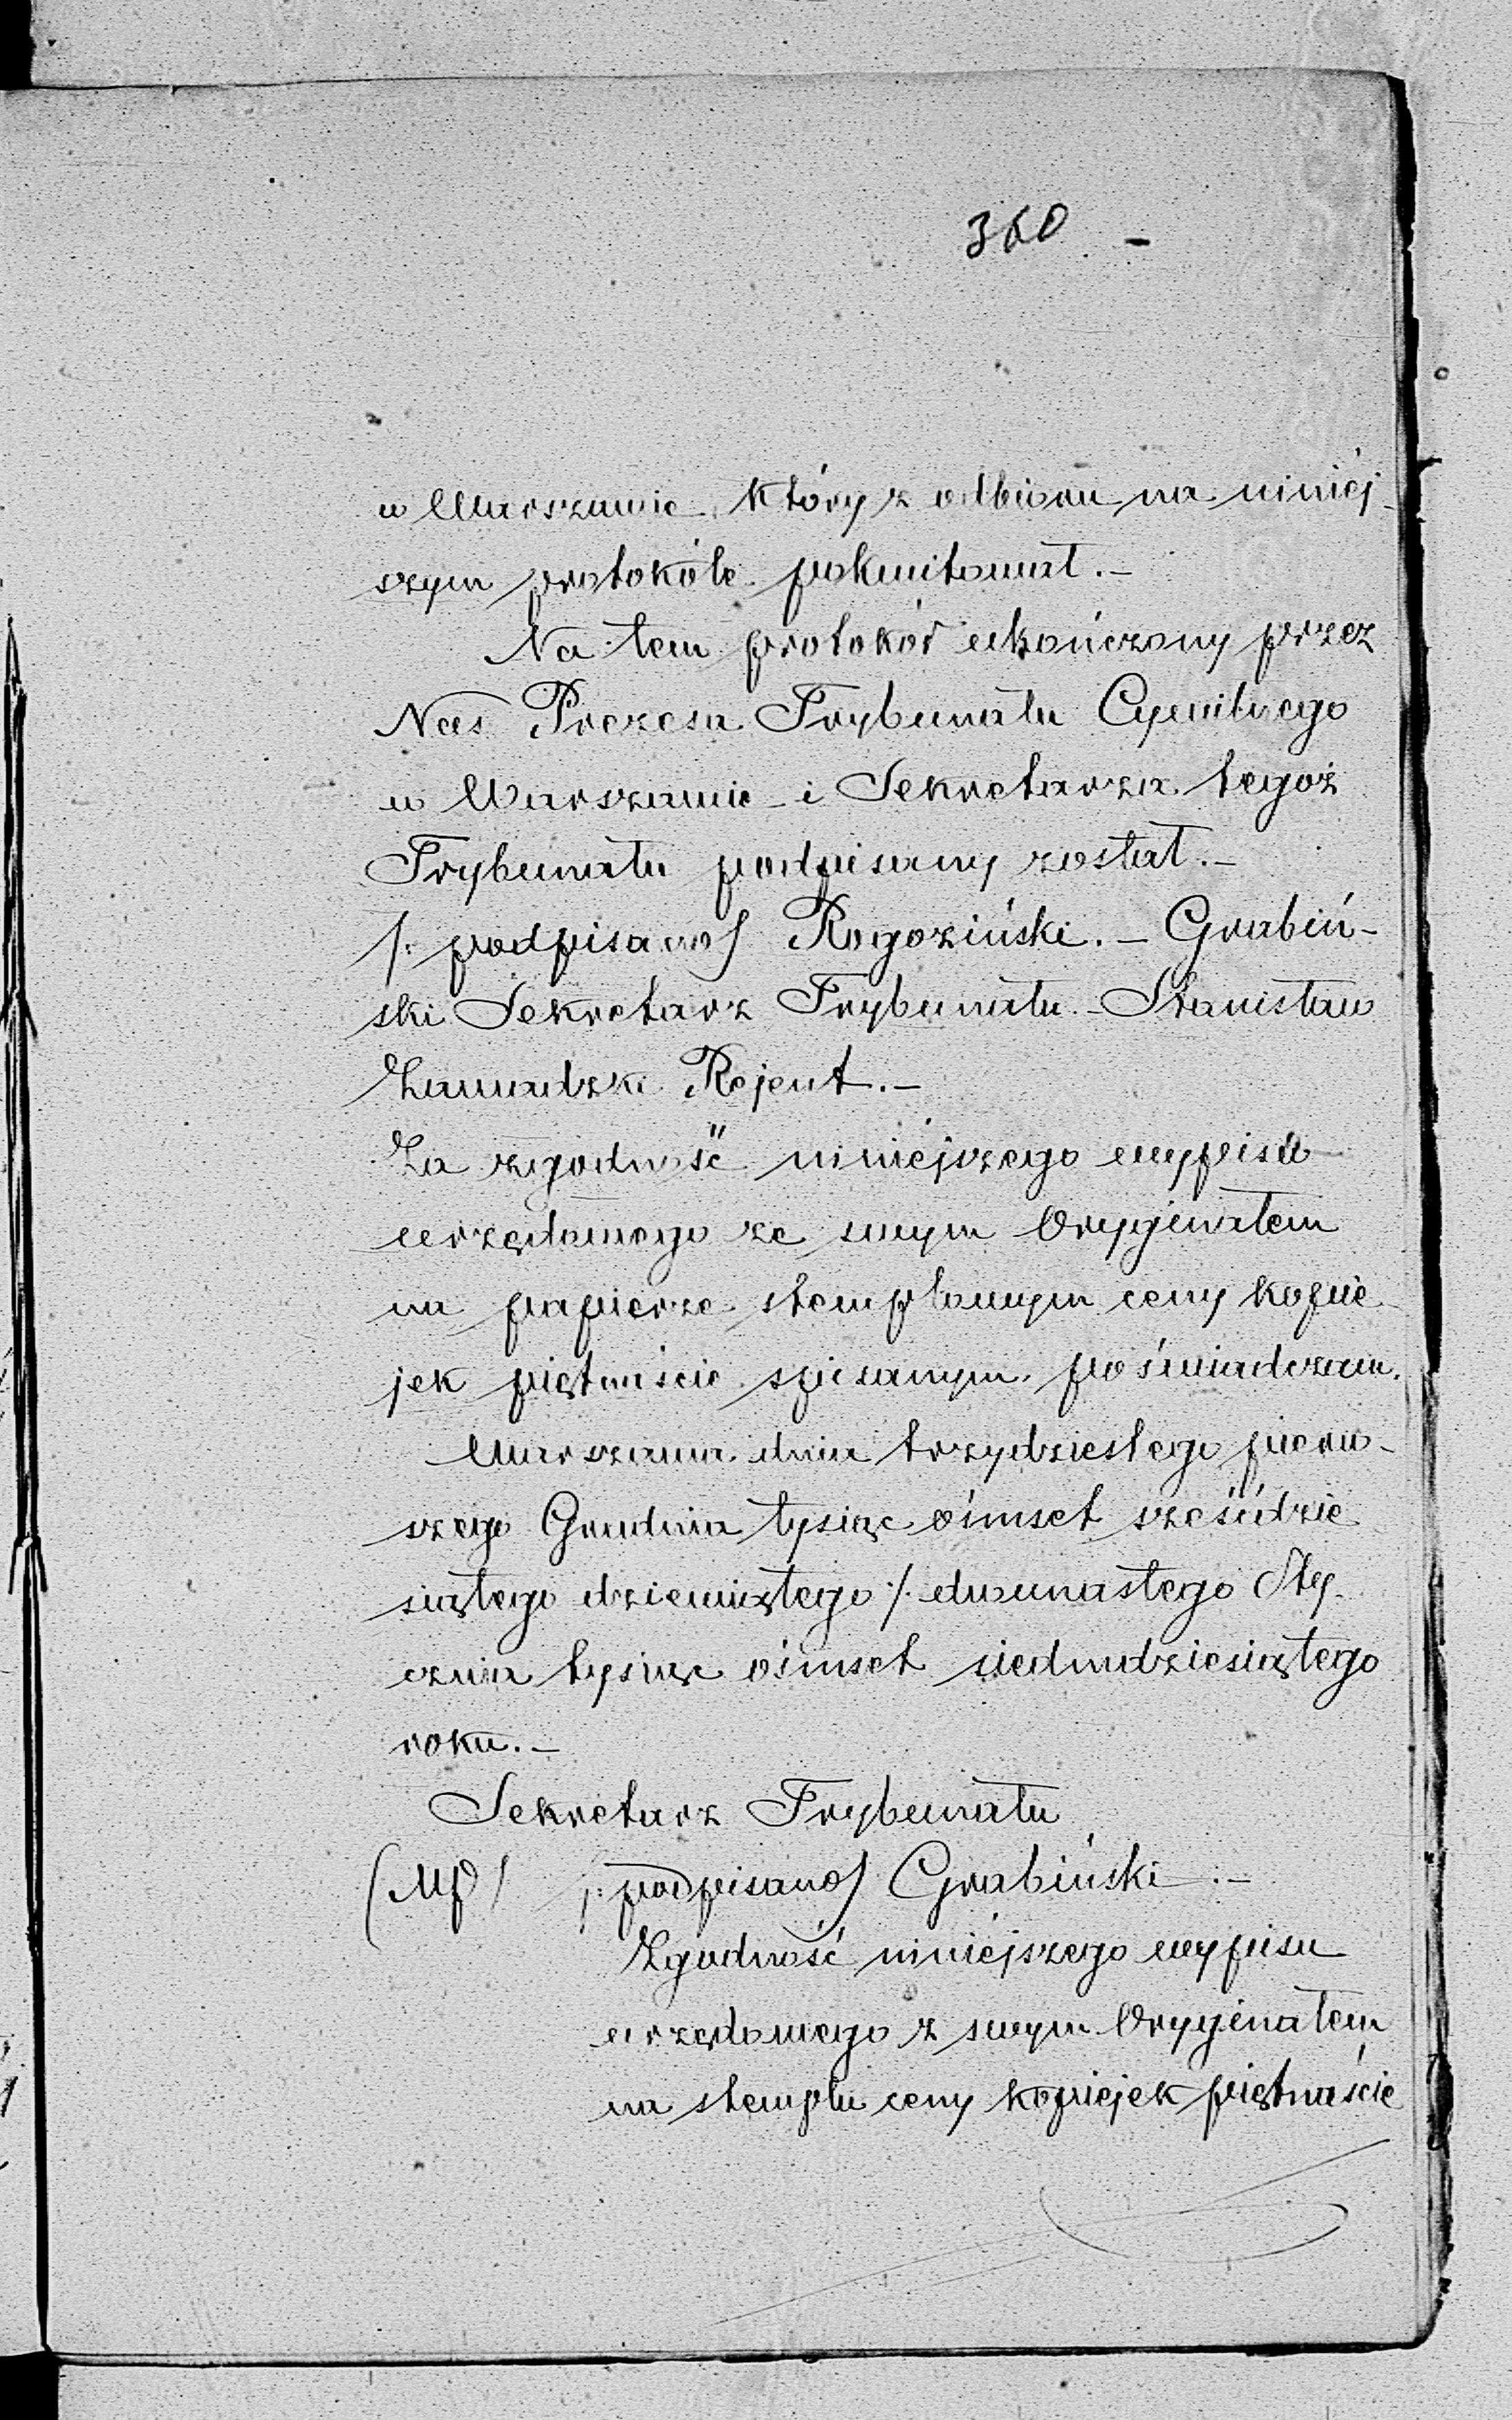 360 -
w Warszawie, który z odbioru na niniej-
szym protokóle pokwitował.-
Na tem protokół ukończony przez
Nas Prezesa Trybunału Cywilnego
w Warszawie i Sekretarza tegoż
Trybunału podpisany został.-
/: podpisano/ Rogoziński.- Grabiń-
ski Sekretarz Trybunału.- Stanisław
Zawadzki Rejent.-
Za zgodność niniejszego wypisu
urzędowego ze swym Oryginałem
na papierze stemplowym ceny kopie-
jek piętnaście spisanym, poświadczam.
Warszawa dnia trzydziestego pierw-
szego Grudnia tysiąc ośmset sześćdzie
siątego dziewiątego /. dwunastego Sty-
cznia tysiąc ośmset siedmdziesiątego
roku.-
Sekretarz Trybunału
(MP) /: podpisano/ Grabiński.-
Zgodność niniejszego wypisu
urzędowego z swym Oryginałem
na stemplu ceny kopiejek piętnaście